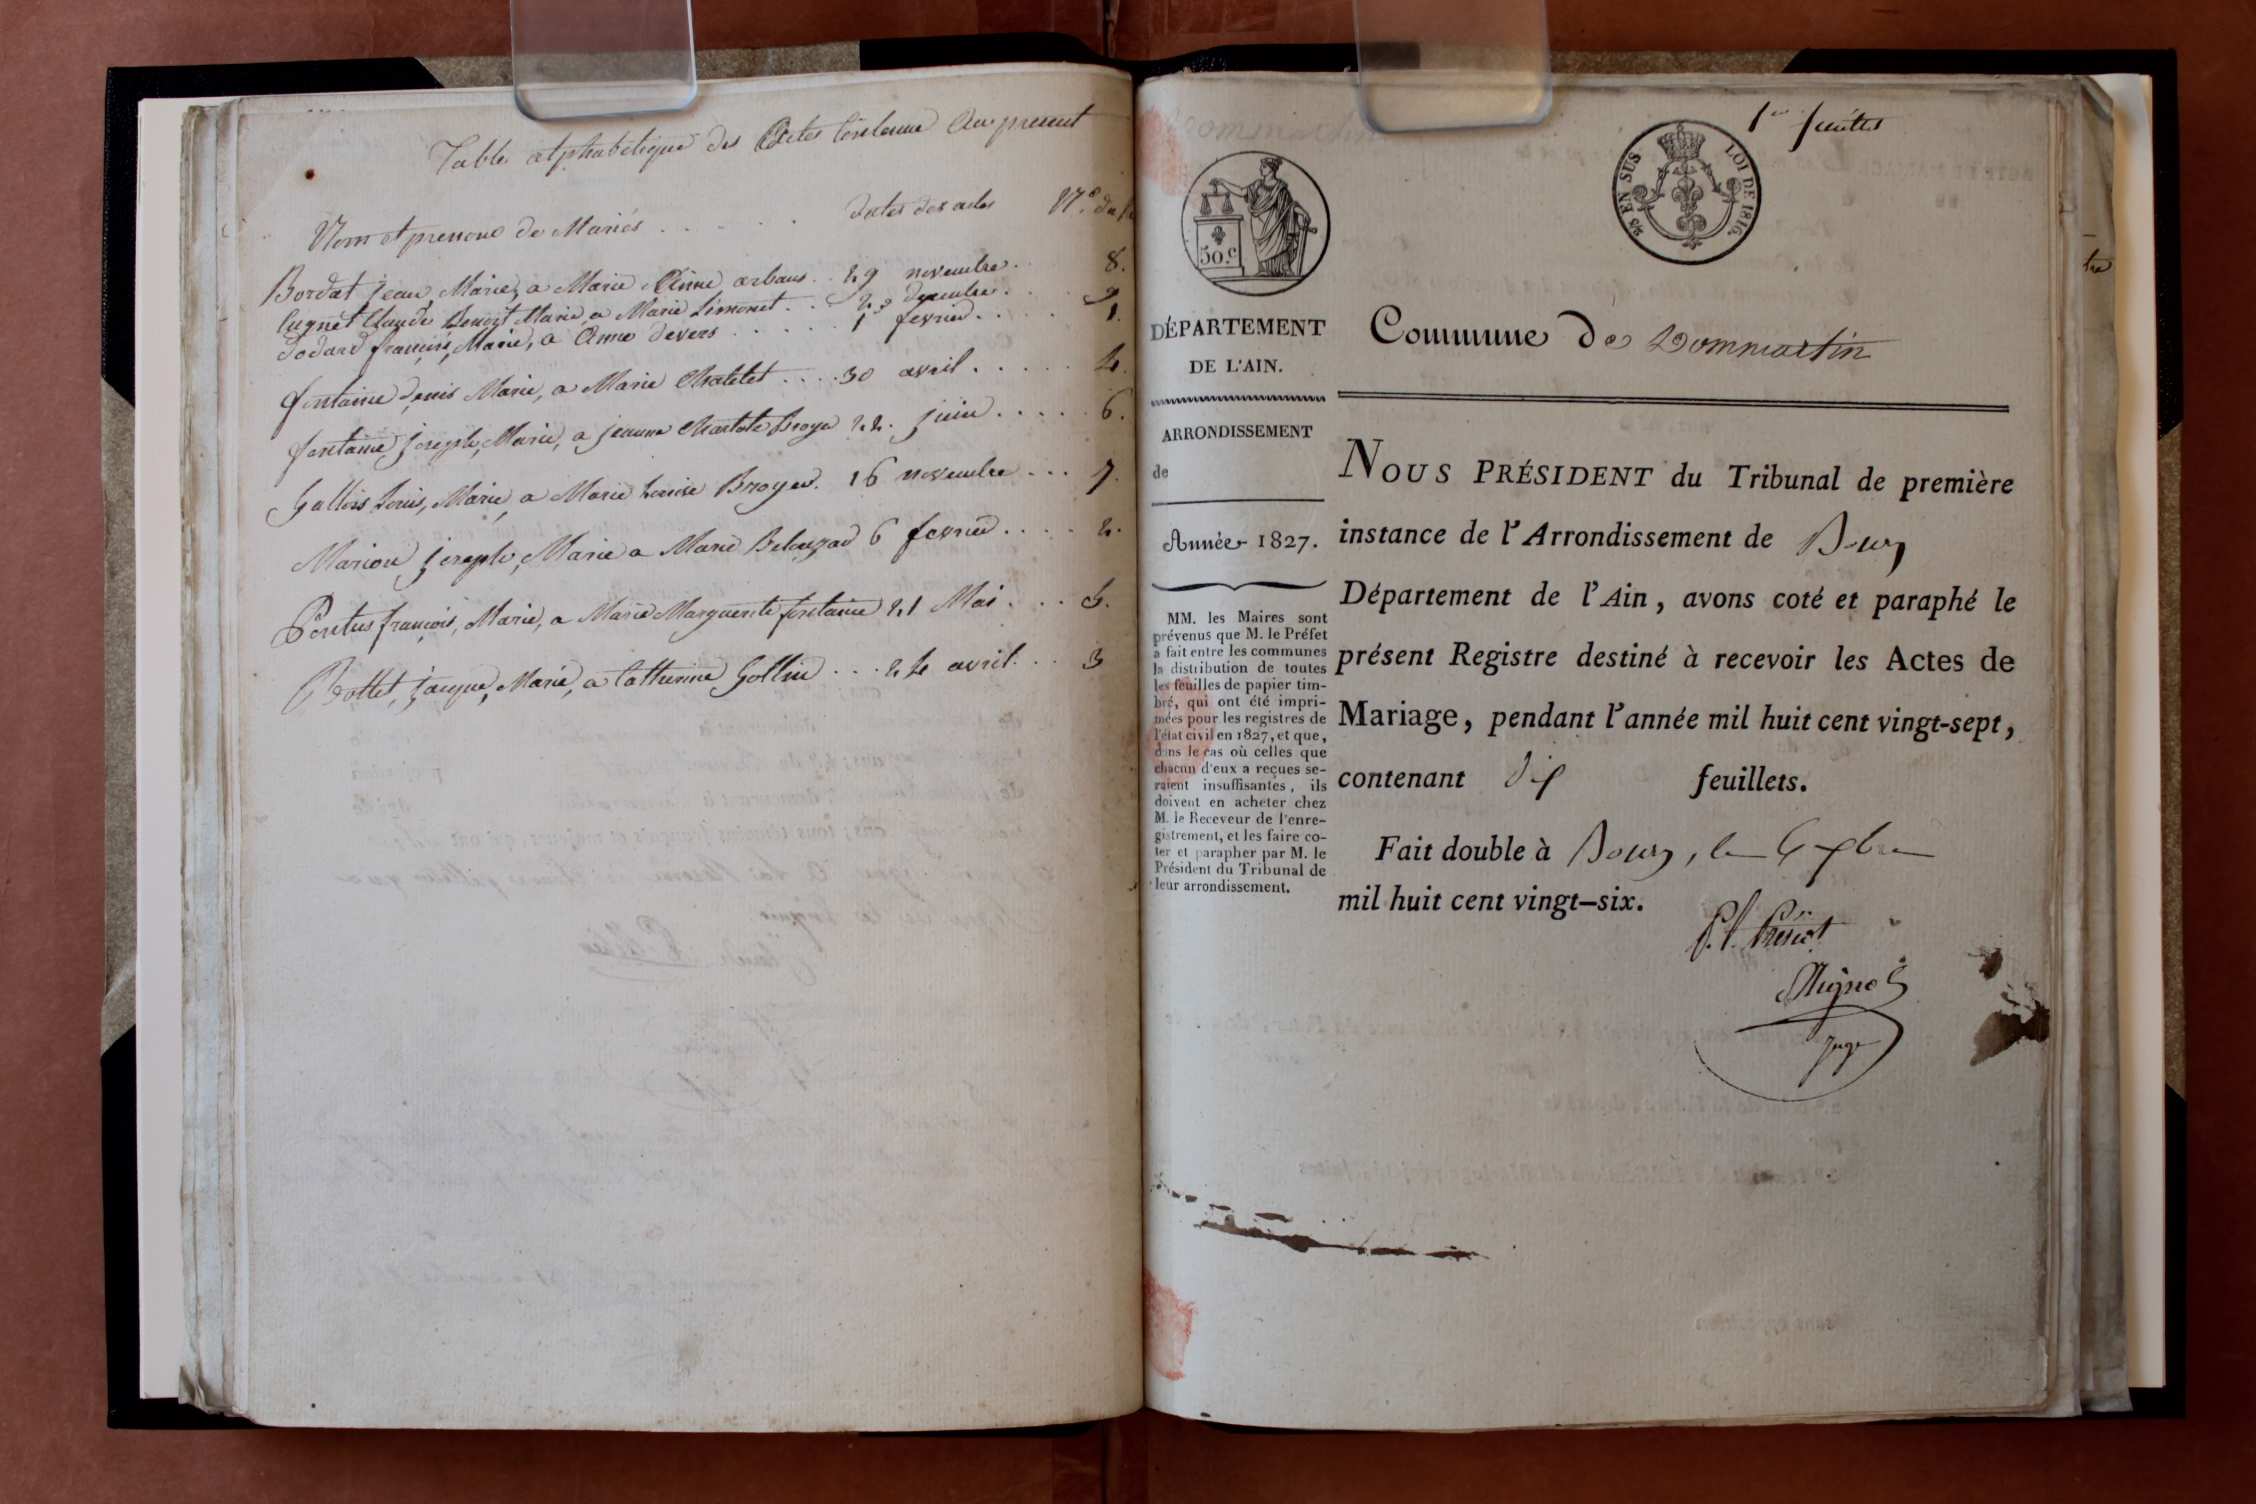 Table alphabétique des Actes Contenue Au present
Nom et prenoms de Mariés . . . . . dates des actes N.o du
Bordat jean, Marié, a Marie Anne arbans . . 29 novembre . 8.
Cugnet Claude Benoit Marié, a Marie Limonet . . . décembre . . 9
dodard françois, Marié, a Anne devers . . . . . 1 fevrier . . . . 1.
fontaine denis Marié, a Marie Chatelet . . . . 30 avril . . . . . 4.
fontaine joseph, Marié, a jeanne Charlote Broyer 22. juin . . . . . 6.
Gallois Louis, Marié, a Marie Louise Broyer. 16 novembre . . . 7.
Marion joseph, Marié a Marie 6 fevrier . . . . 2.
françois, Marié, a Marie Marguerite fontaine 21 Mai . . . 5.
Bottet, jacque, Marié, a Catherine Gollin . . . 24 avril . . . 3
1er feuillet
2/10 EN SUS LOI DE 1816.
50.c
DÉPARTEMENT
DE L'AIN.
Commune de Dommartin
ARRONDISSEMENT
de
Année 1827.
MM. les Maires sont
prévenus que M. le Préfet
a fait entre les communes
la distribution de toutes
les feuilles de papier tim-
bré, qui ont été impri-
mées pour les registres de
l'état civil en 1827, et que,
dans le cas où celles que
chacun d'eux a reçues se-
raient insuffisantes, ils
doivent en acheter chez
M. le Receveur de l'enre-
gistrement, et les faire co-
ter et parapher par M. le
Président du Tribunal de
leur arrondissement.
NOUS PRÉSIDENT du Tribunal de première
instance de l'Arrondissement de Bourg
Département de l'Ain, avons coté et paraphé le
présent Registre destiné à recevoir les Actes de
Mariage, pendant l'année mil huit cent vingt-sept,
contenant dix feuillets.
Fait double à Bourg, le
mil huit cent vingt-six.
Juge